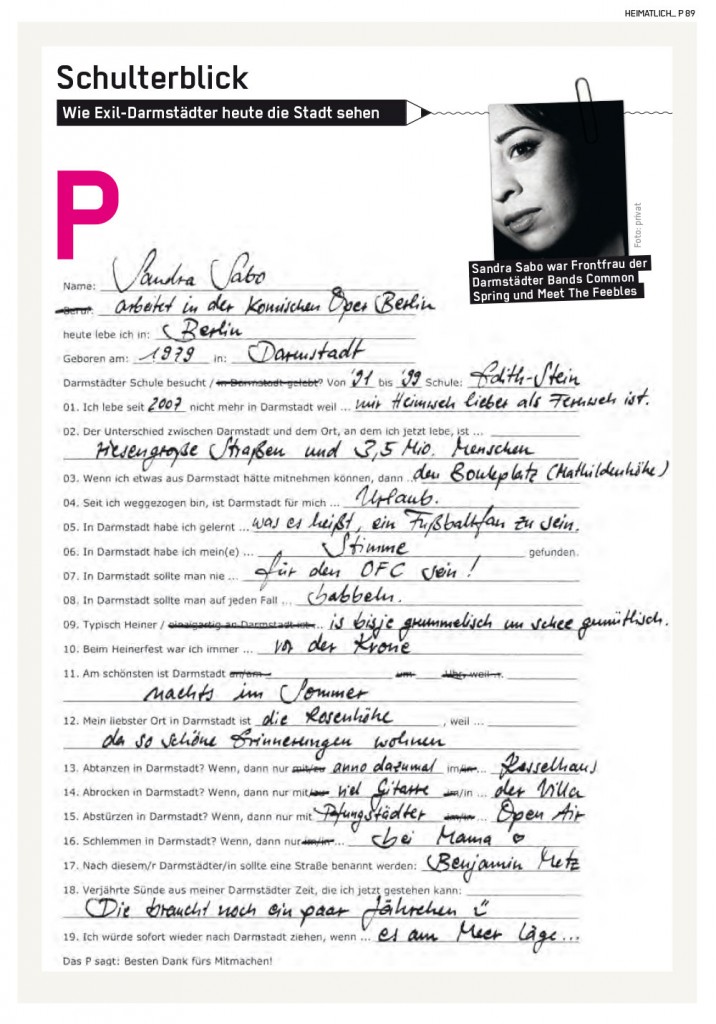 HEIMATLICH_ P 89
Schulterblick
Wie Exil-Darmstädter heute die Stadt sehen
P
Foto: privat
Sandra Sabo war Frontfrau der
Darmstädter Bands Common
Spring und Meet The Feebles
Name: Sandra Sabo
Beruf: arbeitet in der Komischen Oper Berlin
heute lebe ich in: Berlin
Geboren am: 1979 in: Darmstadt
Darmstädter Schule besucht / in Darmstadt gelebt? Von '91 bis '99 Schule: Edith-Stein
01. Ich lebe seit 2007 nicht mehr in Darmstadt weil ... mir Heimweh lieber als Fernweh ist.
02. Der Unterschied zwischen Darmstadt und dem Ort, an dem ich jetzt lebe, ist ...
riesengroße Straßen und 3,5 Mio. Menschen
03. Wenn ich etwas aus Darmstadt hätte mitnehmen können, dann ... den Bouleplatz (Mathildenhöhe)
04. Seit ich weggezogen bin, ist Darmstadt für mich ... Urlaub.
05. In Darmstadt habe ich gelernt ... was es heißt, ein Fußballfan zu sein.
06. In Darmstadt habe ich mein(e) ... Stimme gefunden.
07. In Darmstadt sollte man nie ... für den OFC sein!
08. In Darmstadt sollte man auf jeden Fall ... babbeln.
09. Typisch Heiner / einzigartig an Darmstadt ist ... is bisje grummelisch un schee gemütlisch.
10. Beim Heinerfest war ich immer ... vor der Krone
11. Am schönsten ist Darmstadt am/am um Uhr, weil ...
nachts im Sommer
12. Mein liebster Ort in Darmstadt ist die Rosenhöhe, weil ...
da so schöne Erinnerungen wohnen
13. Abtanzen in Darmstadt? Wenn, dann nur mit/zu anno dazumal im/in... Kesselhaus
14. Abrocken in Darmstadt? Wenn, dann nur mit/zu viel Gitarre im/in ... der Villa
15. Abstürzen in Darmstadt? Wenn, dann nur mit Pfungstädter im/in... Open Air
16. Schlemmen in Darmstadt? Wenn, dann nur im/in... bei Mama ♡
17. Nach diesem/r Darmstädter/in sollte eine Straße benannt werden: Benjamin Metz
18. Verjährte Sünde aus meiner Darmstädter Zeit, die ich jetzt gestehen kann:
Die braucht noch ein paar Jährchen
19. Ich würde sofort wieder nach Darmstadt ziehen, wenn ... es am Meer läge...
Das P sagt: Besten Dank fürs Mitmachen!